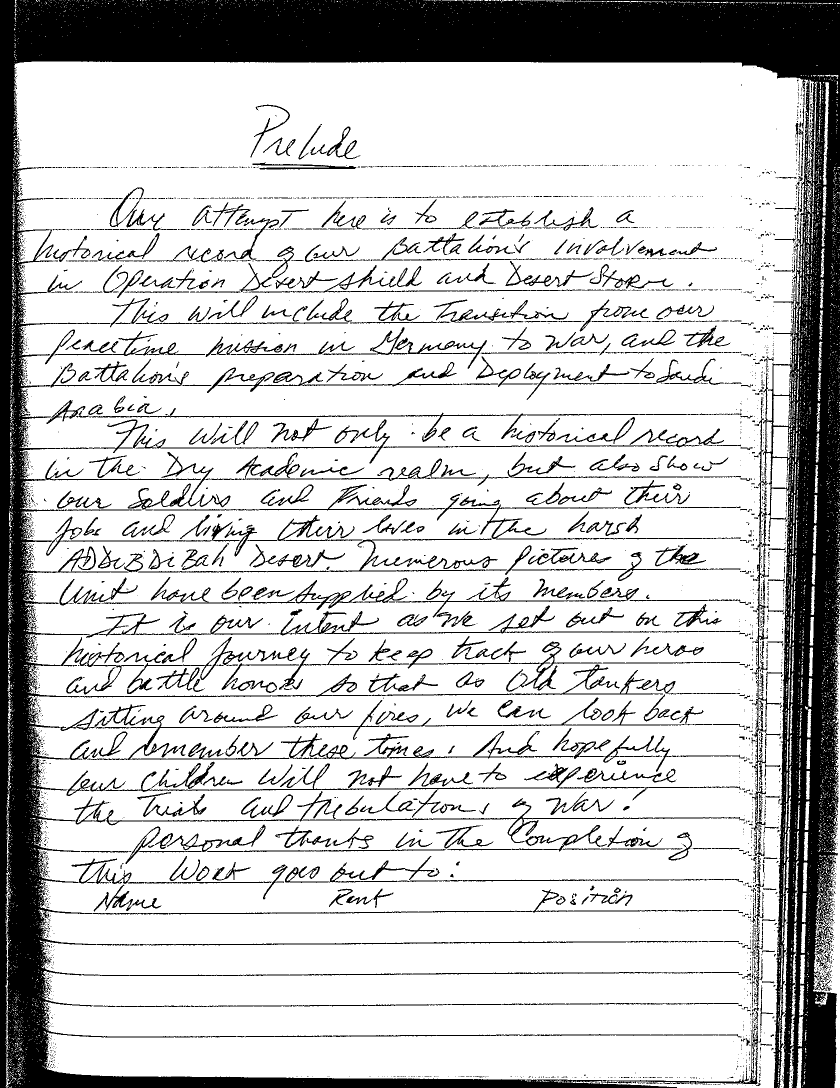 Prelude
Our attempt here is to establish a
historical record of our Battalion's involvement
in Operation Desert Shield and Desert Storm.
This will include the Transition from our
peacetime mission in Germany to War, and the
Battalion's preparation and Deployment to Saudi
Arabia.
This will not only be a historical record
in the Dry Academic realm, but also show
our Soldiers and Friends going about their
jobs and living their lives in the harsh
ADDiBDiBah Desert. Numerous pictures of the
Unit have been supplied by its members.
It is our intent as we set out on this
historical journey to keep track of our heros
and battle honors so that as Old Tankers
sitting around our fires, we can look back
and remember these times. And hopefully
our children will not have to experience
the trials and tribulations of War!
Personal thanks in the Completion of
this Work goes out to:
Name Rank Position